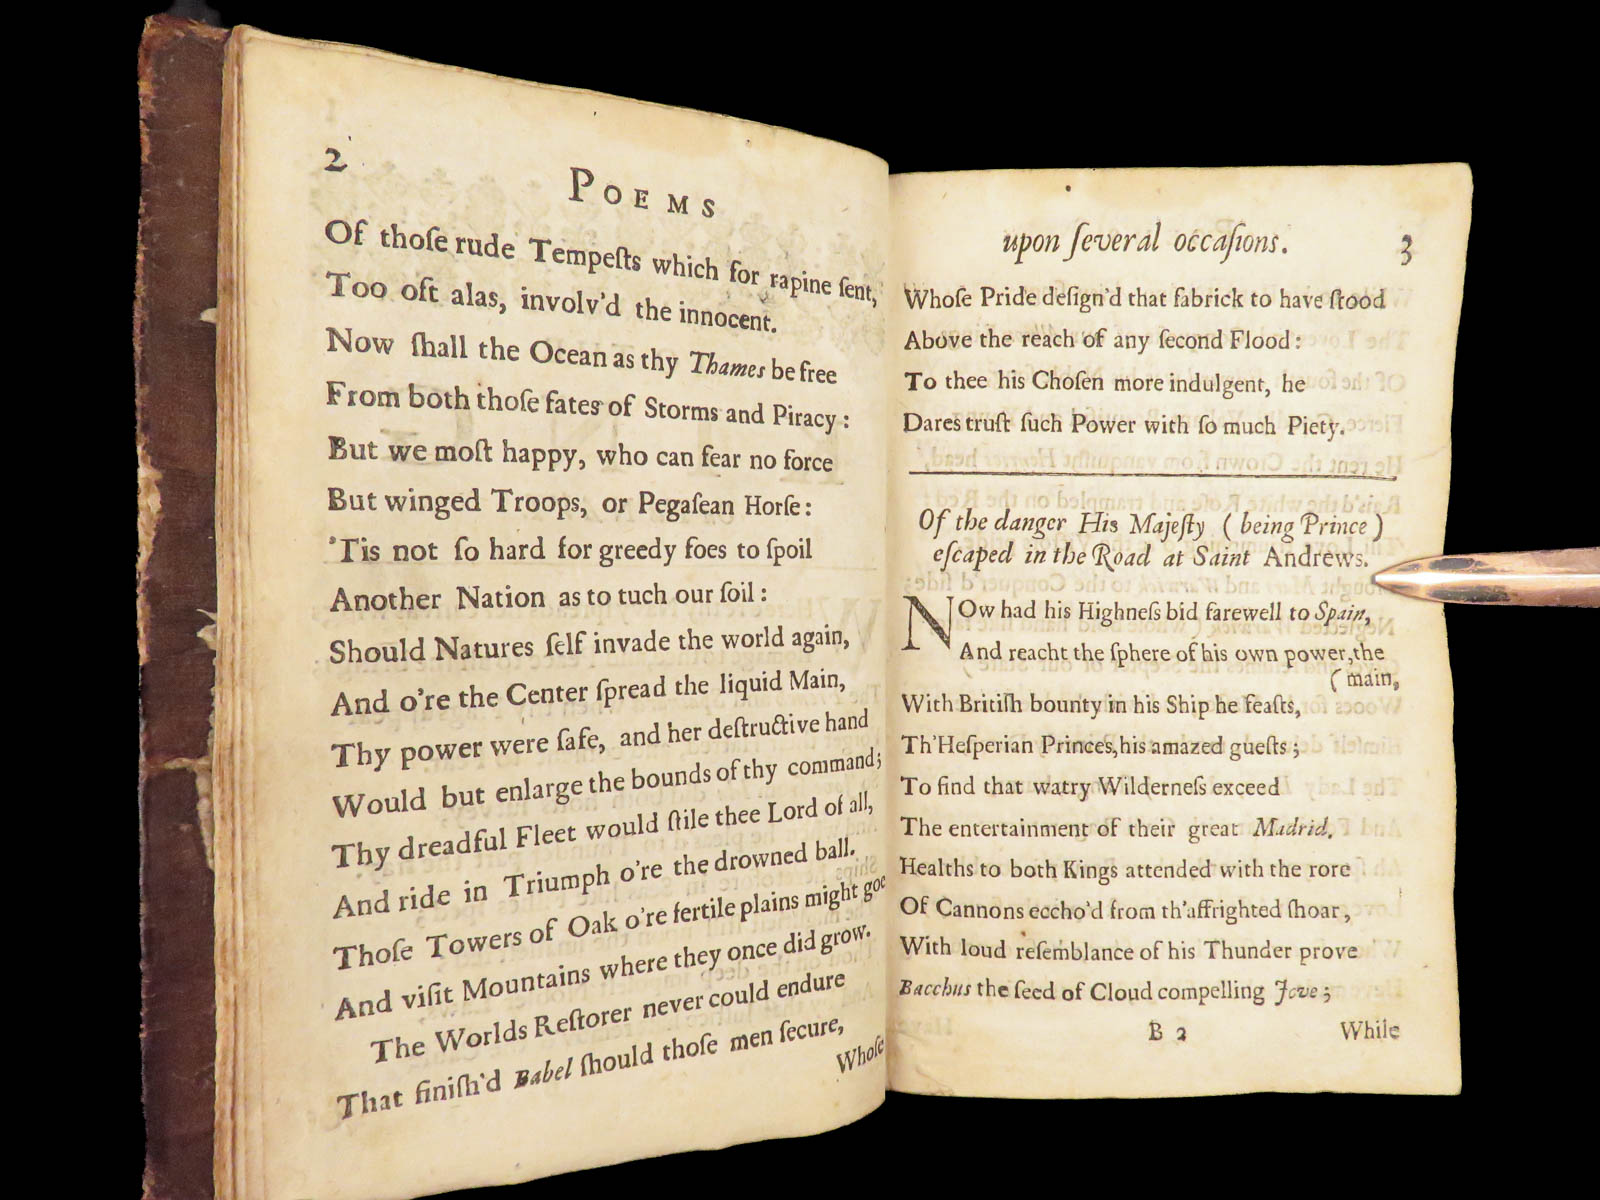 2
POEMS
Of thoſe rude Tempeſts which for rapine ſent,
Too oft alas, involv'd the innocent.
Now ſhall the Ocean as thy Thames be free
From both thoſe fates of Storms and Piracy:
But we moſt happy, who can fear no force
But winged Troops, or Pegaſean Horſe:
'Tis not ſo hard for greedy foes to ſpoil
Another Nation as to tuch our ſoil:
Should Natures ſelf invade the world again,
And o're the Center ſpread the liquid Main,
Thy power were ſafe, and her deſtructive hand
Would but enlarge the bounds of thy command;
Thy dreadful Fleet would ſtile thee Lord of all,
And ride in Triumph o're the drowned ball.
Thoſe Towers of Oak o're fertile plains might goe
And viſit Mountains where they once did grow.
The Worlds Reſtorer never could endure
That finiſh'd Babel ſhould thoſe men ſecure,
Whoſe
upon ſeveral occaſions. 3
Whoſe Pride deſign'd that fabrick to have ſtood
Above the reach of any ſecond Flood:
To thee his Choſen more indulgent, he
Dares truſt ſuch Power with ſo much Piety.
Of the danger His Majeſty (being Prince)
eſcaped in the Road at Saint Andrews.
NOw had his Highneſs bid farewell to Spain,
And reacht the ſphere of his own power, the
(main,
With Britiſh bounty in his Ship he feaſts,
Th'Heſperian Princes, his amazed gueſts;
To find that watry Wilderneſs exceed
The entertainment of their great Madrid.
Healths to both Kings attended with the rore
Of Cannons eccho'd from th'affrighted ſhoar,
With loud reſemblance of his Thunder prove
Bacchus the ſeed of Cloud compelling Jove;
B 2 While